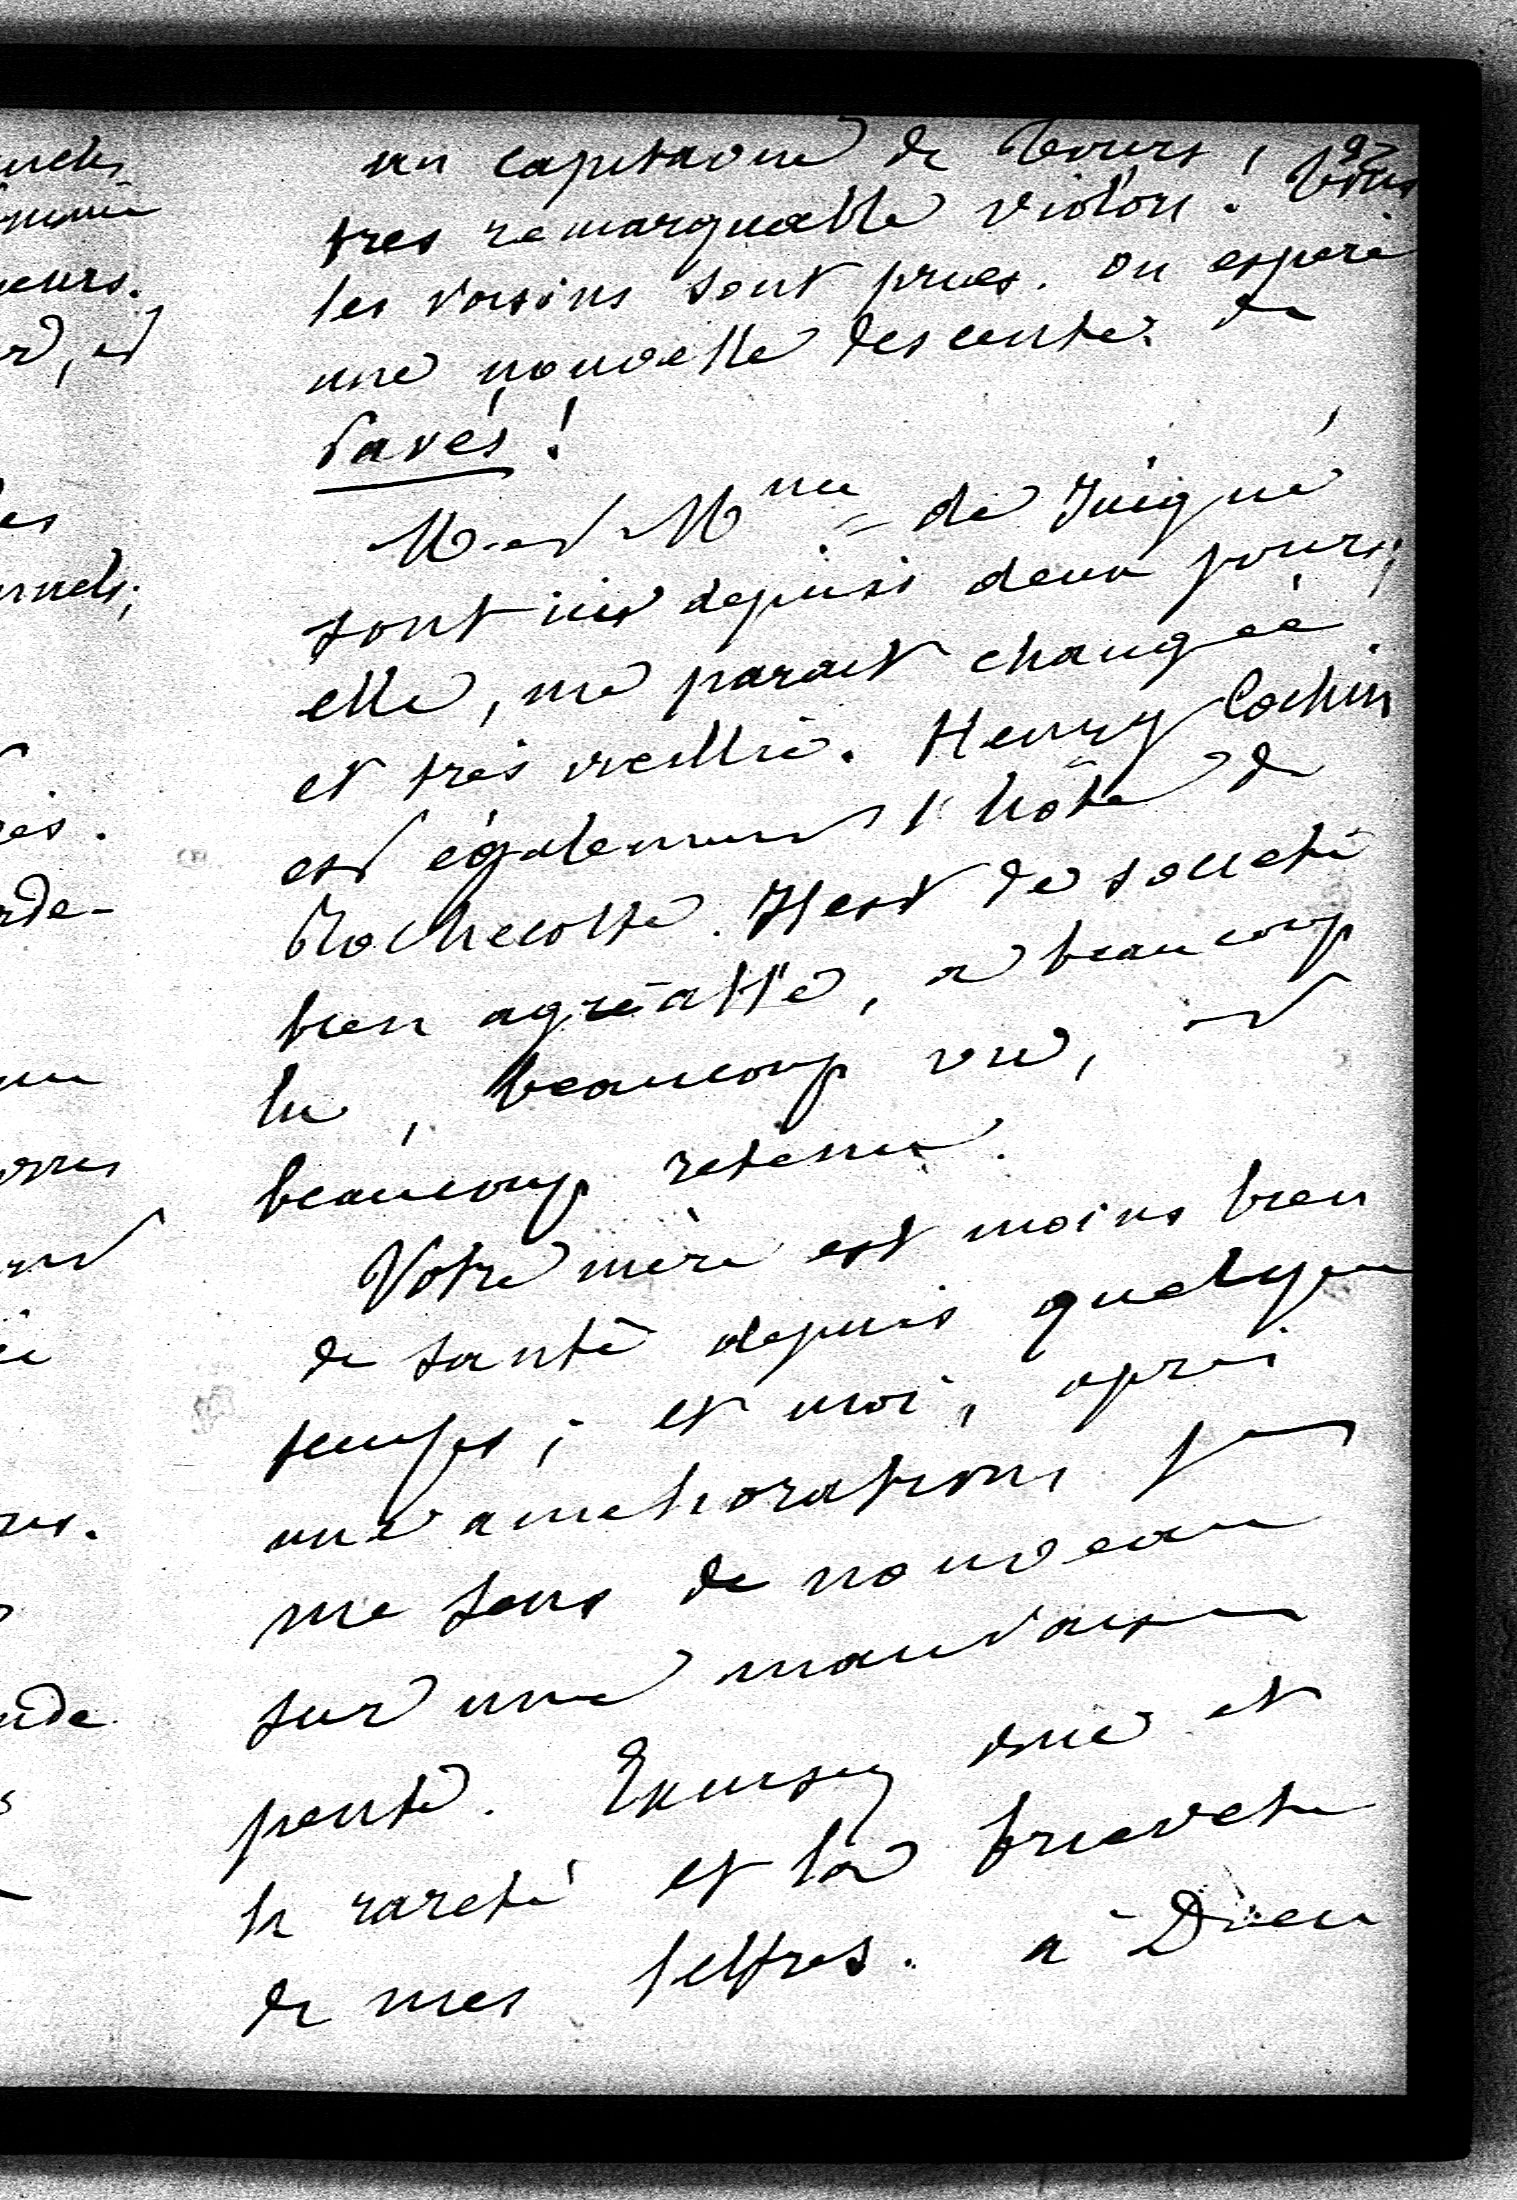 un capitaine de Tours,
92
très remarquable violon. Tous
les voisins sont priés. On espère
une nouvelle descente de
Pavés!
M. et Mme de Juigné
sont ici depuis deux jours;
elle, me parait changée,
et très vieillie. Henry Cochin
est également l'hôte de
Rochecotte. Il est de société
bien agréable, a beaucoup
lu, beaucoup vu, et
beaucoup retenu.
Votre mère est moins bien
de santé depuis quelque
temps; et moi, après
une amélioration, je
me sens de nouveau
sur une mauvaise
pente. Excusez et
la rareté et la brieveté
de mes lettres. à Dieu